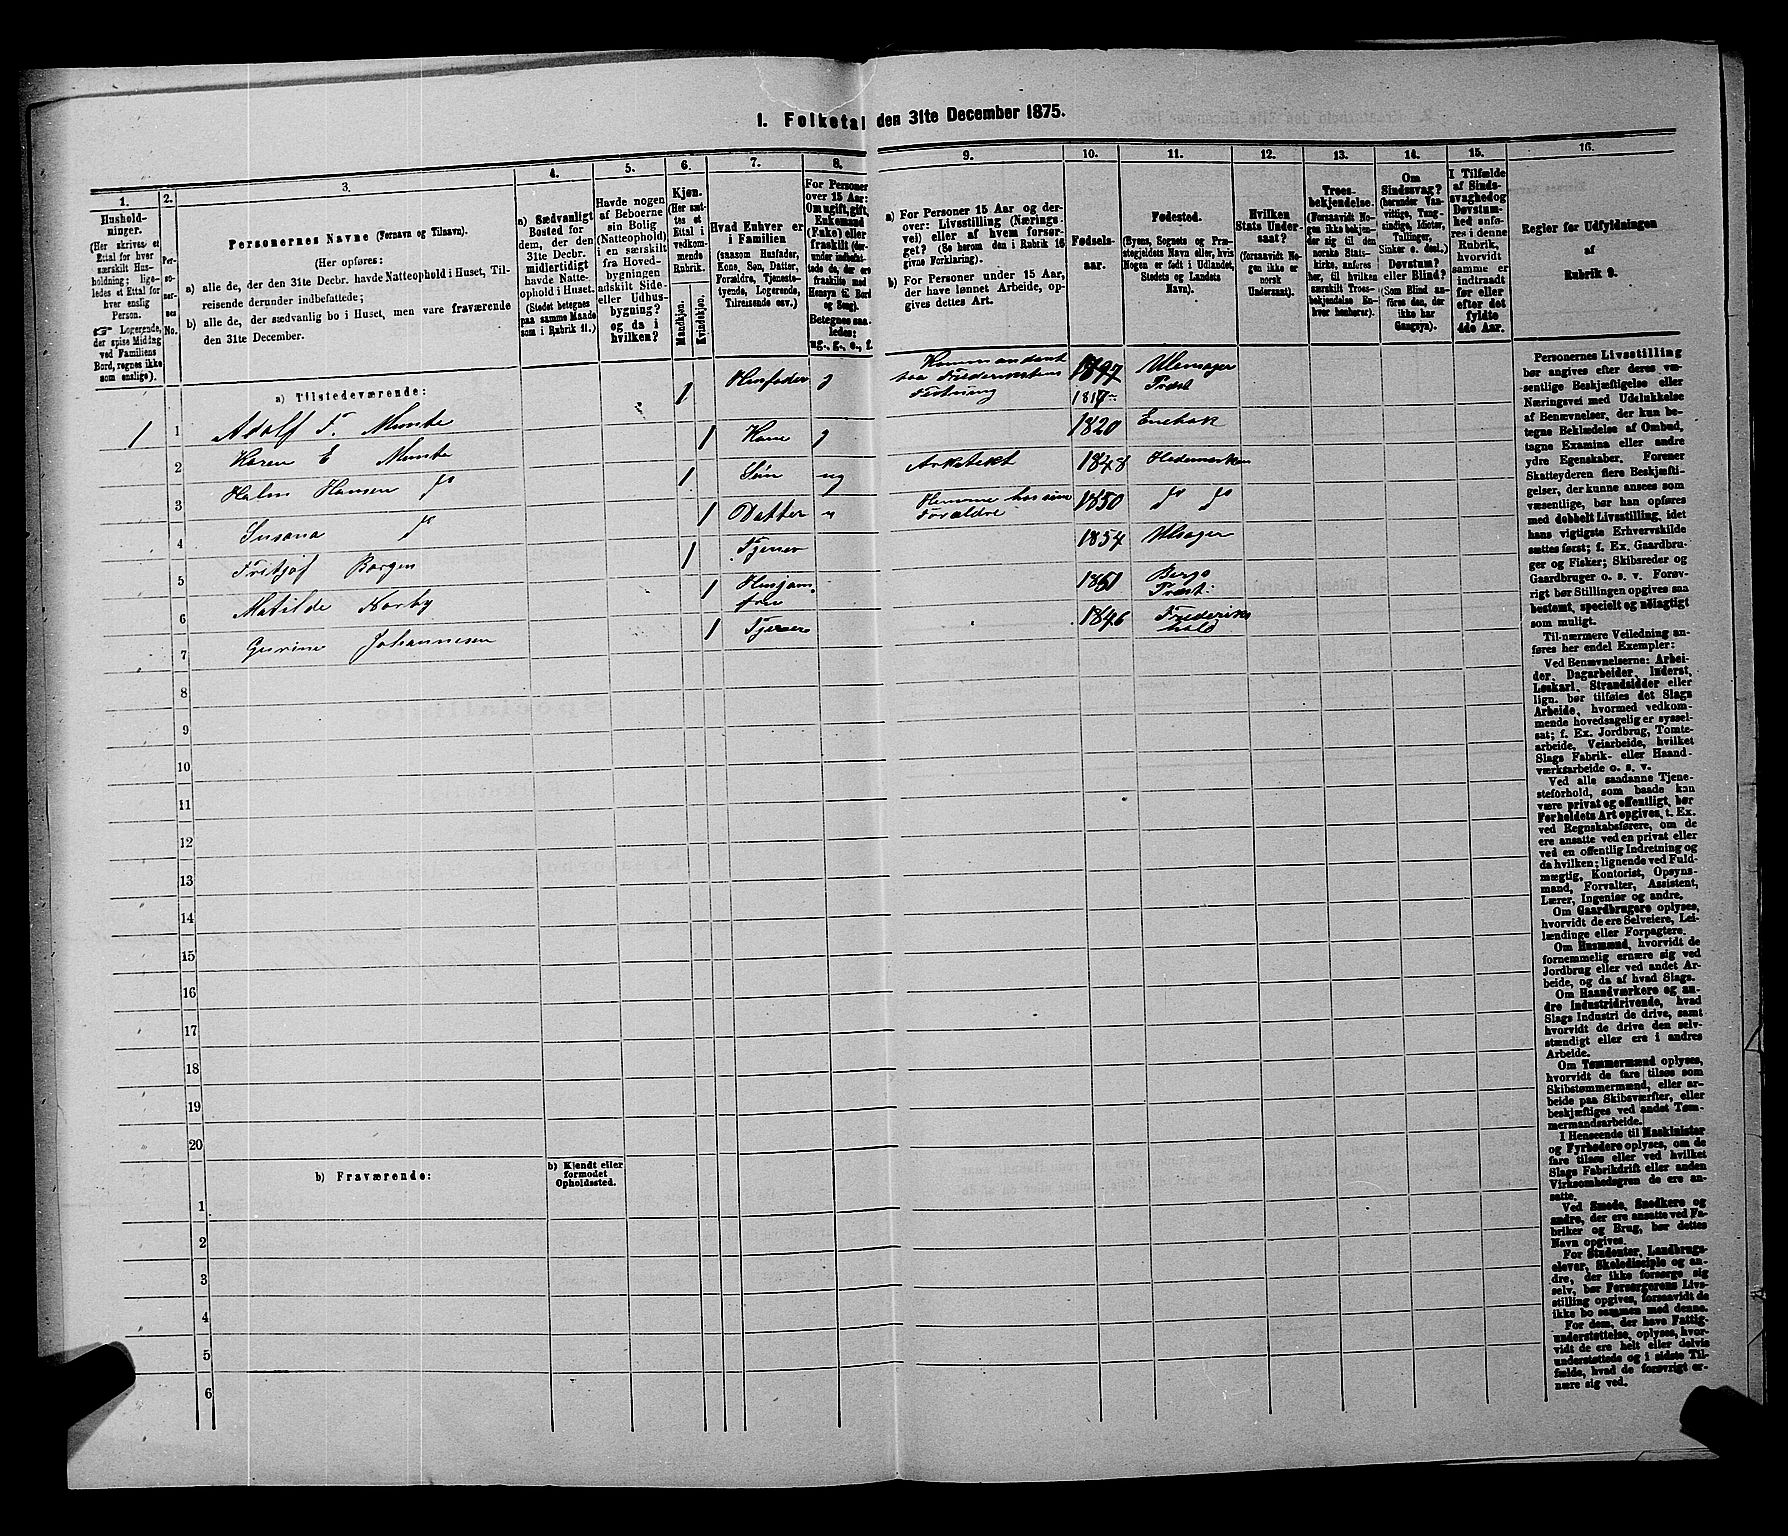 I. Folketal den 31te December 1875.
1.
Husholdninger.
(Her skrives et
Ettal for hver
særskilt Husholdning;
ligeledes et Ettal for
hver enslig
Person.
Logerende,
der spise Middag
ved Familiens
Bord, regnes ikke
som enslige).
2.
Personernes
No.
3.
Personernes Navne (Fornavn og Tilnavn).
(Her opføres:
a) alle de, der den 31te Decbr. havde Natteophold i Huset, Tilreisende derunder indbefattede;
b) alle de, der sædvanlig bo i Huset, men vare fraværende
den 31te December.
4.
a) Sædvanligt
Bosted for
dem, der den
31te Decbr.
midlertidigt
havde Natteophold
i Huset.
(Stedet betegnes
paa samme Maade
som i Rubrik 11.)
5.
Havde nogen
af Beboerne
sin Bolig
(Natteophold)
i en særskilt
fra Hovedbygningen
adskilt Side-
eller Udhusbygning?
og da i
hvilken?
6.
Kjøn.
(Her sættes et
Ettal i
vedkommende
Rubrik.
Mandkjøn.
Kvindekjøn.
7.
Hvad Enhver er
i Familien
(saasom Husfader,
Kone, Søn, Datter,
Forældre, Tjenestetyende,
Logerende,
Tilreisende osv.)
8.
For Personer
over 15 Aar:
Om ugift, gift,
Enkemand
(Enke) eller
fraskilt
Betegnes saaledes:
ug., g., e., f.
9.
a) For Personer 15 Aar og derover:
Livsstilling (Næringsvei)
eller af hvem forsørget?
(Se herom den i Rubrik 16
givne Forklaring).
b) For Personer under 15 Aar,
der have lønnet Arbeide, opgives
dettes Art.
10.
Fødselsaar.
11.
Fødested.
(Byens, Sognets og Præstegjeldets
Navn eller, hvis
Nogen er født i Udlandet,
Stedets og Landets
Navn).
12.
Hvilken
Stats Undersaat?
(forsaavidt Nogen
ikke er
norsk
Undersaat).
13.
Troesbekjendelse.
(Forsaavidt Nogen
ikke bekjender
sig til den
norske Statskirke,
anføres
her, til hvilken
særskilt Troesbekjendelse
Enhver
henhører).
14.
Om
Sindssvag?
(herunder Vanvittige,
Tungsindige,
Idioter,
Tullinger,
Sinker o. desl.)
Døvstum?
eller Blind?
(Som Blind anføres
den, der
ikke har
Gangsyn).
15.
I Tilfælde
af Sindssvaghed
og
Døvstumhed
anføres
i denne
Rubrik,
hvorvidt
samme er
indtraadt
før eller
efter det
fyldte
4de Aar.
16.
Regler for Udfyldningen
af
Rubrik 9.
a) Tilstedeværende:
1 1 Adolf F. Munthe 1 Husfader g Kommandant paa Frederikstens Festning 1817 Ulensager Præst
2 Karen E Munthe 1 Kone g 1820 Enebak
3 Holm Hansen Do 1 Søn ug Arkitekt 1848 Hedemarken
4 Susana Do 1 Datter " Hjemme hos sine Forældre 1850 Do Do
5 Fritjof Borgen 1 Tjener 1854 Ulsager
6 Matilde Norby 1 Husjomfru 1851 Præst:
7 Gurine Johannesen 1 Tjener 1846 Frederikshald
8
9
10
11
12
13
14
15
16
17
18
19
20
b) Fraværende:
b) Kjendt eller
formodet
Opholdssted.
1
2
3
4
5
6
Personernes Livsstilling
bør angives efter deres væsentlige
Beskjæftigelse eller
Næringsvei med Udelukkelse
af Benævnelser, der kun betegne
Beklædelse af Ombud,
tagne Examina eller andre
ydre Egenskaber. Forener
Skatteyderen flere Beskjæftigelser,
der kunne ansees som
væsentlige, bør han opføres
med dobbelt Livsstilling, idet
hans vigtigste Erhvervskilde
sættes først; f. Ex. Gaardbruger
og Fisker; Skibsreder og
Gaardbruger o. s. v. Forøvrigt
bør Stillingen opgives saa
bestemt, specielt og nøiagtigt
som muligt.
Til nærmere Veiledning anføres
her endel Exempler:
Ved Benævnelserne: Arbeider,
Dagarbeider, Inderst,
Løskarl, Strandsidder eller
lign. bør tilføies det Slags
Arbeide, hvormed vedkommende
hovedsagelig er sysselsat;
f. Ex. Jordbrug, Tomtearbeide,
Veiarbeide, hvilket
Slags Fabrik- eller Haandværksarbeide
o. s. v.
Ved alle saadanne Tjenesteforhold,
som baade kan
være privat og offentligt, bør
Forholdets Art opgives, t. Ex.
ved Regnskabsførere, om de
ere ansatte ved en privat eller
ved en offentlig Indretning og
da hvilken; lignende ved Fuldmægtig,
Kontorist, Opsynsmand,
Forvalter, Assistent,
Lærer, Ingeniør og andre.
Om Gaardbrugere oplyses,
hvorvidt de ere Selveiere, Leilændinge
eller Forpagtere.
Om Husmænd, hvorvidt de
fornemmelig ernære sig ved
Jordbrug eller ved andet Arbeide,
og da af hvad Slags.
Om Haandværkere og andre
Industridrivende, hvad
Slags Industri de drive, samt
hvorvidt de drive den selvstændigt
eller ere i andres
Arbeide.
Om Tømmermænd oplyses,
hvorvidt de fare tilsøs som
Skibstømmermænd, eller arbeide
paa Skibsværfter, eller
beskjæftiges ved andet Tømmermandsarbeide.
I Henseende til Maskinister
og Fyrbødere oplyses, om de
fare tilsøs eller ved hvilket
Slags Fabrikdrift eller anden
Virksomhedsgren de ere ansatte.
Ved Smede, Snedkere og
andre, der ere ansatte ved Fabriker
og Brug, bør dettes
Navn opgives.
For Studenter, Landbrugselever,
Skoledisciple og andre,
der ikke forsørge sig
selv, bør Forsørgerens Livsstilling
opgives, forsaavidt de
ikke bo sammen med denne.
For dem, der have Fattigunderstøttelse,
oplyses, hvorvidt
de ere helt eller delvis
understøttede og i sidste Tilfælde,
hvad de forøvrigt ernære
sig ved.